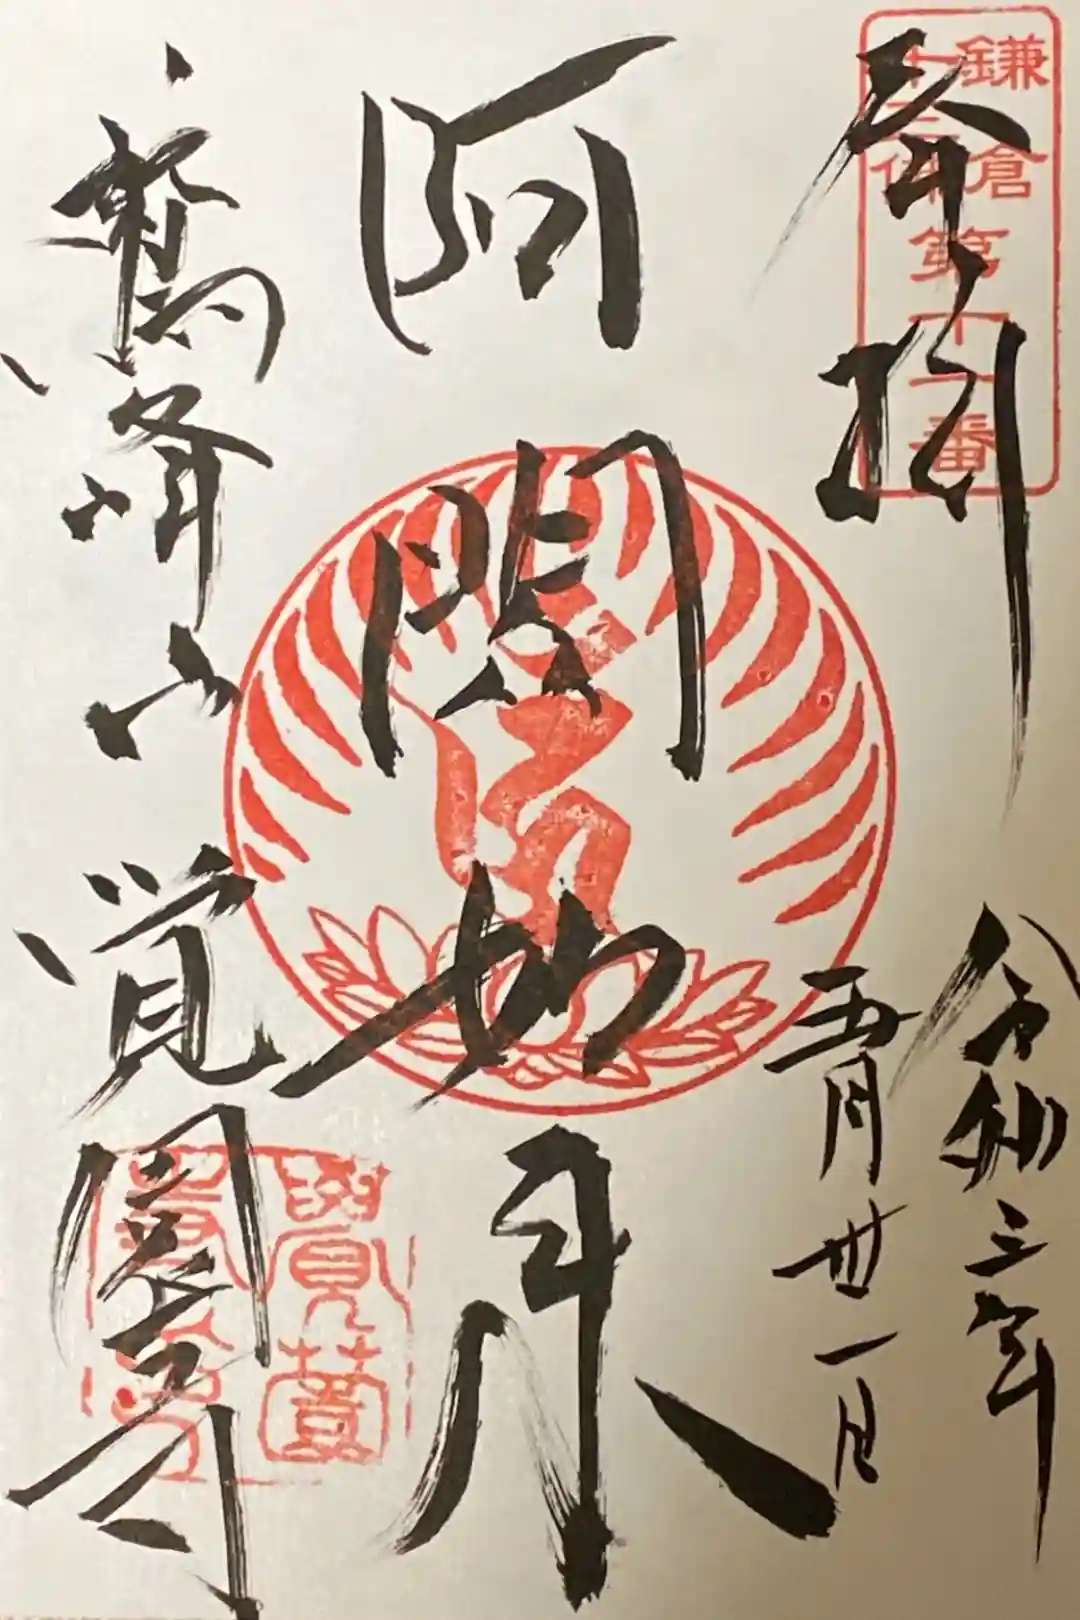 鎌倉
十三佛
第十一番
奉拝
令和三年
五月廿一日
阿閦如来
鷲峰山
覚園寺